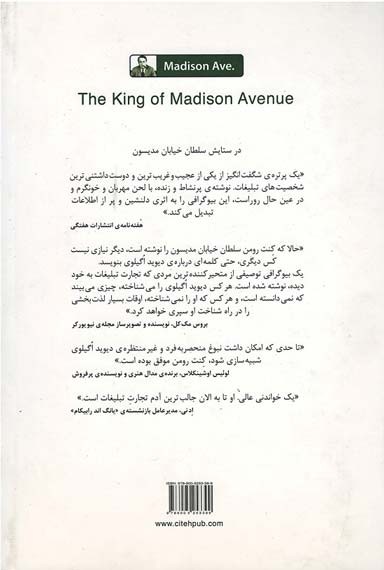 Madison Ave.
The King of Madison Avenue
در ستایش سلطان خیابان مدیسون
«یک پرتره‌ی شگفت‌انگیز از یکی از عجیب‌و‌غریب‌ترین و دوست‌داشتنی‌ترین
شخصیت‌های تبلیغات. نوشته‌ی پرنشاط و زنده، با لحن مهربان و خونگرم و
در عین حال روراست، این بیوگرافی را به اثری دلنشین و پر از اطلاعات
تبدیل می‌کند.»
هفته‌نامه‌ی انتشارات هفتگی
«حالا که کنت رومن سلطان خیابان مدیسون را نوشته است، دیگر نیازی نیست
کس دیگری، حتی کلمه‌ای درباره‌ی دیوید آگیلوی بنویسد.
یک بیوگرافی توصیفی از متحیرکننده‌ترین مردی که تجارت تبلیغات به خود
دیده، نوشته شده است. هر کس دیوید آگیلوی را می‌شناخته، چیزی می‌بیند
که نمی‌دانسته است، و هر کس که او را نمی‌شناخته، اوقات بسیار لذت‌بخشی
را در راه شناخت او سپری خواهد کرد.»
بروس مک‌کل، نویسنده و تصویرساز مجله‌ی نیویورکر
«تا حدی که امکان داشت نبوغ منحصربه‌فرد و غیرمنتظره‌ی دیوید آگیلوی
شبیه‌سازی شود، کنت رومن موفق بوده است.»
لوئیس اوشینکلاس، برنده‌ی مدال هنری و نویسنده‌ی پرفروش
«یک خواندنی عالی. او تا به الان جالب‌ترین آدم تجارت تبلیغات است.»
اِدنی، مدیرعامل بازنشسته‌ی «یانگ اند رابیکام»
www.citehpub.com